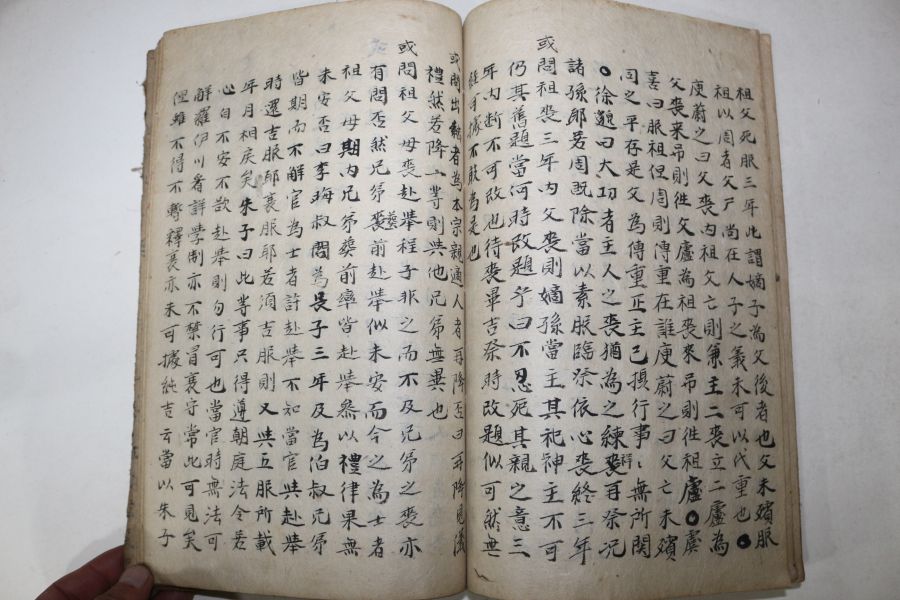 祖父死服三年此謂嫡子為父後者也父未殯服
祖以周者父尸尚在人子之義未可以代重也●
庾蔚之曰父喪內祖父亡則兼主二喪立二廬為
父喪来吊則徃父廬為祖喪來吊則徃祖廬●虞
喜曰服祖但周則傳重在誰庾蔚之曰父亡未殯
同之平存是父為傳重正主己攝行事事無所闕
●徐邈曰大功者主人之喪猶為之練祥再祭况
諸孫耶若周既除當以素服臨祭依心喪終三年
或問祖喪三年內父喪則嫡孫當主其祀神主不可
仍其舊題當何時改題乎曰不忍死其親之意三
年內断不可改也待喪畢吉祭時改題似可然無
經可據不敢為是也
或問出動者為本宗親適人者再降否曰再降見儀
禮然若降一等則與他兄弟無異也
或問祖父母喪赴舉程子非之而不及兄弟之喪亦
有問否然兄弟喪葬前赴舉似未安而今之為士者
祖父母期內兄弟葬前率皆赴舉叅以禮律果無
未安否曰李晦叔問為長子三年及為伯叔兄弟
皆期而不解官為士者許赴舉不知當官與赴舉
時還吉服耶衰服耶若須吉服則又與五服所載
年月相戾矣朱子曰此等事只得遵朝庭法令若
心自不安不欲赴舉則勿行可也當官時無法可
解羅伊川看詳學制亦不禁冒哀守常此可見矣
但雖不得不暫釋衰亦未可據純吉云當以朱子